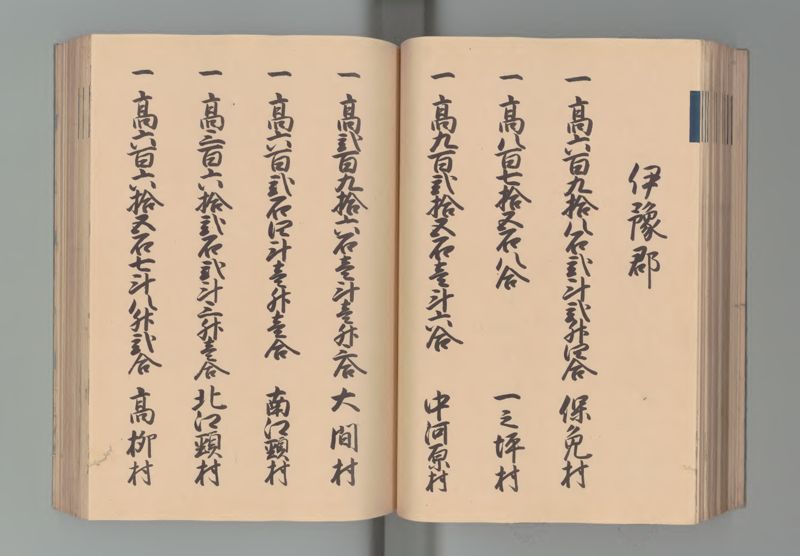 伊豫郡
一 高六百九拾八石弐斗弐升四合 保免村
一 高八百七拾五石八合 一之坪村
一 高九百弐拾五石壱斗六合 中河原村
一 高弐百九拾六石壱斗壱升六合 大間村
一 高六百弐石四斗壱升壱合 南江頭村
一 高三百六拾弐石弐斗三升壱合 北江頭村
一 高六百六拾五石七斗八升弐合 高柳村